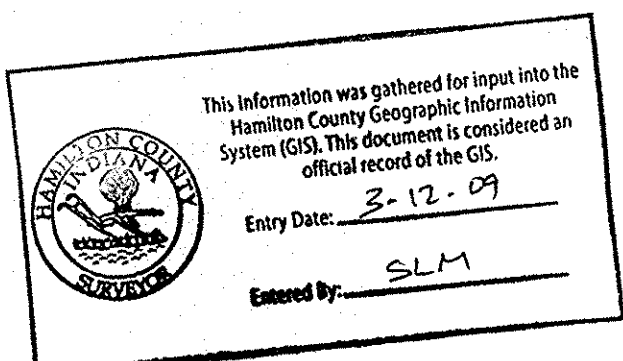 This Information was gathered for input into the
Hamilton County Geographic Information
System (GIS). This document is considered an
official record of the GIS.
Entry Date: 3-12-09
Entered By: SLM
HAMILTON COUNTY
INDIANA
SURVEYOR